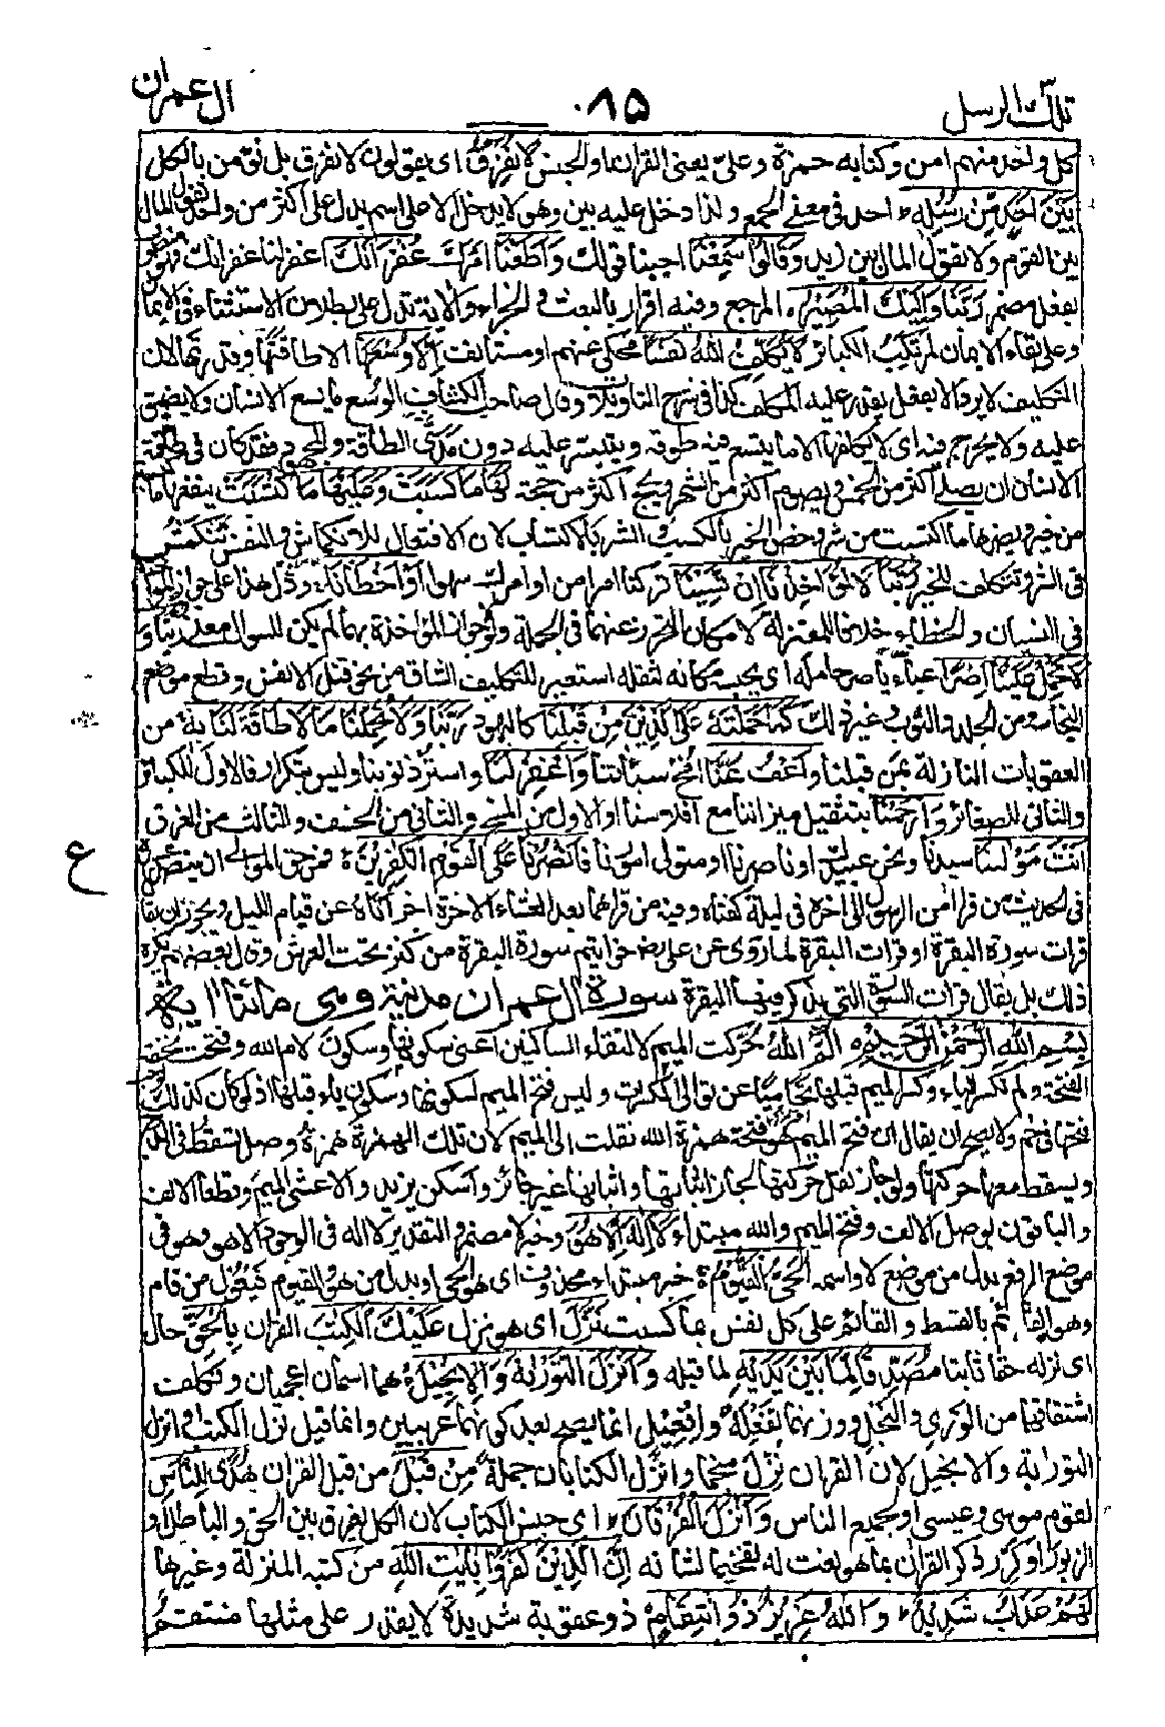 تلك الرسل ٣
٠٨٥
ال عمران
كل واحد منهم امن وكتابه حمزة وعلي يعني القران او الجنس لا نفرق اى يقولون لا نفرق بل نؤمن بالكل
بَيْنَ اَحَدٍ مِّنْ رُّسُلِهٖ احد في معنى الجمع ولذا دخل عليه بين وهو لا يدخل الا على اسم يدل على اكثر من واحد تقول المال
بين القوم ولا تقول المال بين زيد وَقَالُوْا سَمِعْنَا اجبنا قولك وَاَطَعْنَا امرك غُفْرَانَكَ اغفر لنا غفرانك فهو منصوب
بفعل مضمر رَبَّنَا وَاِلَيْكَ الْمَصِيْرُ المرجع وفيه اقرار بالبعث والجزاء والاية تدل على بطلان الاستثناء في الايمان
وعلى بقاء الايمان لمرتكب الكبائر لَا يُكَلِّفُ اللّٰهُ نَفْسًا محكي عنهم او مستانف اِلَّا وُسْعَهَا الا طاقتها وقدرتها لان
التكليف لا يرد الا بفعل يقدر عليه المكلف كذا في شرح التاويلات وقال صاحب الكشاف الوسع ما يسع الانسان ولا يضيق
عليه ولا يحرج فيه اى لا يكلفها الا ما يتسع فيه طوقه ويتيسر عليه دون مدى الطاقة والمجهود فقد كان في طاقة
الانسان ان يصلي اكثر من الخمس ويصوم اكثر من الشهر ويحج اكثر من حجة لَهَا مَا كَسَبَتْ وَعَلَيْهَا مَا اكْتَسَبَتْ ينفعها ما كسبت
من خير ويضرها ما اكتسبت من شر وخص الخير بالكسب والشر بالاكتساب لان الافتعال للانكماش والنفس تنكمش
في الشر وتتكلف للخير رَبَّنَا لَا تُؤَاخِذْنَا اِنْ نَّسِيْنَا تركنا امرا من اوامرك سهوا اَوْ اَخْطَاْنَا ودل هذا على جواز المؤاخذة
في النسيان والخطاء خلافا للمعتزلة لامكان التحرز عنهما في الجملة ولولا جواز المؤاخذة بهما لم يكن للسوال معنى رَبَّنَا وَ
لَا تَحْمِلْ عَلَيْنَا اِصْرًا عباء ياصر حامله اى يحبسه مكانه لثقله استعير للتكليف الشاق من نحو قتل الانفس وقطع موضع
النجاسة من الجلد والثوب وغير ذلك كَمَا حَمَلْتَهٗ عَلَى الَّذِيْنَ مِنْ قَبْلِنَا كاليهود رَبَّنَا وَلَا تُحَمِّلْنَا مَا لَا طَاقَةَ لَنَا بِهٖ من
العقوبات النازلة بمن قبلنا وَاعْفُ عَنَّا امح سيئاتنا وَاغْفِرْ لَنَا واستر ذنوبنا وليس بتكرار فالاول للكبائر
والثاني للصغائر وَارْحَمْنَا بتثقيل ميزاننا مع افلاسنا او الاول من المسخ والثاني من الخسف والثالث من الغرق
اَنْتَ مَوْلٰنَا سيدنا ونحن عبيدك او ناصرنا او متولى امورنا فَانْصُرْنَا عَلَى الْقَوْمِ الْكٰفِرِيْنَ فمن حق المولى ان ينصر عبيده
ع
في الحديث من قرا امن الرسول الى اخره في ليلة كفتاه وفيه من قراهما بعد العشاء الاخرة اجزاتاه عن قيام الليل ويجوز ان يقال
قرات سورة البقرة او قرات البقرة لما روى عن علي رض خواتيم سورة البقرة من كنز تحت العرش وقال بعضهم يكره
ذلك بل يقال قرات السورة التي يذكر فيها البقرة سورة ال عمران مدنية وهي مائتا اية
بِسْمِ اللّٰهِ الرَّحْمٰنِ الرَّحِيْمِ الٓمّٓ اللّٰهُ حركت الميم لالتقاء الساكنين اعنى سكونها وسكون لام الله وفتحت لخفة
الفتحة ولم تكسر للياء وكسر الميم قبلها تحاميا عن توالى الكسرات وليس فتح الميم لسكونها وسكون ياء قبلها اذ لو كان كذلك
فتحها في حم ولا يصح ان يقال ان فتح الميم هو فتحة همزة الله نقلت الى الميم لان تلك الهمزة همزة وصل تسقط في الدرج
ويسقط معها حركتها ولو جاز نقل حركتها لجاز اثباتها واثباتها غير جائز واسكن يزيد والاعشى الميم وقطعا الالف
والباقون بوصل الالف وفتح الميم والله مبتداء لَا اِلٰهَ اِلَّا هُوَ وخبر لا مضمر والتقدير لا اله في الوجود الا هو وهو في
موضع الرفع بدل من موضع لا واسمه الْحَيُّ الْقَيُّوْمُ خبر مبتداء محذوف اى هو الحى او بدل من هو والقيوم فيعول من قام
وهو القائم بالقسط والقائم على كل نفس بما كسبت نَزَّلَ اى هو نزل عَلَيْكَ الْكِتٰبَ القران بِالْحَقِّ حال
اى نزله حقا ثابتا مُصَدِّقًا لِّمَا بَيْنَ يَدَيْهِ لما قبله وَاَنْزَلَ التَّوْرٰىةَ وَالْاِنْجِيْلَ هما اسمان اعجميان وتكلف
اشتقاقهما من الورى والنجل ووزنهما بتفعلة وافعيل انما يصح بعد كونهما عربيين وانما قيل نزل الكتاب وانزل
التوراية والانجيل لان القران نزل منجما وانزل الكتابان جملة مِنْ قَبْلُ من قبل القران هُدًى لِّلنَّاسِ
لقوم موسى وعيسى او لجميع الناس وَاَنْزَلَ الْفُرْقَانَ اى جنس الكتاب لان الكل يفرق بين الحق والباطل او
الزبور او كرر ذكر القران بما هو نعت له تفخيما لشانه اِنَّ الَّذِيْنَ كَفَرُوْا بِاٰيٰتِ اللّٰهِ من كتبه المنزلة وغيرها
لَهُمْ عَذَابٌ شَدِيْدٌ وَاللّٰهُ عَزِيْزٌ ذُو انْتِقَامٍ ذو عقوبة شديدة لا يقدر على مثلها منتقم